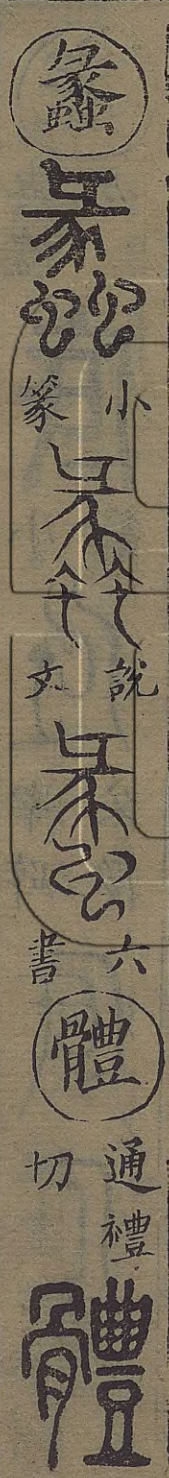 蠡
蠡
小篆
蠡
說文
蠡
六書
體
通禮切
體